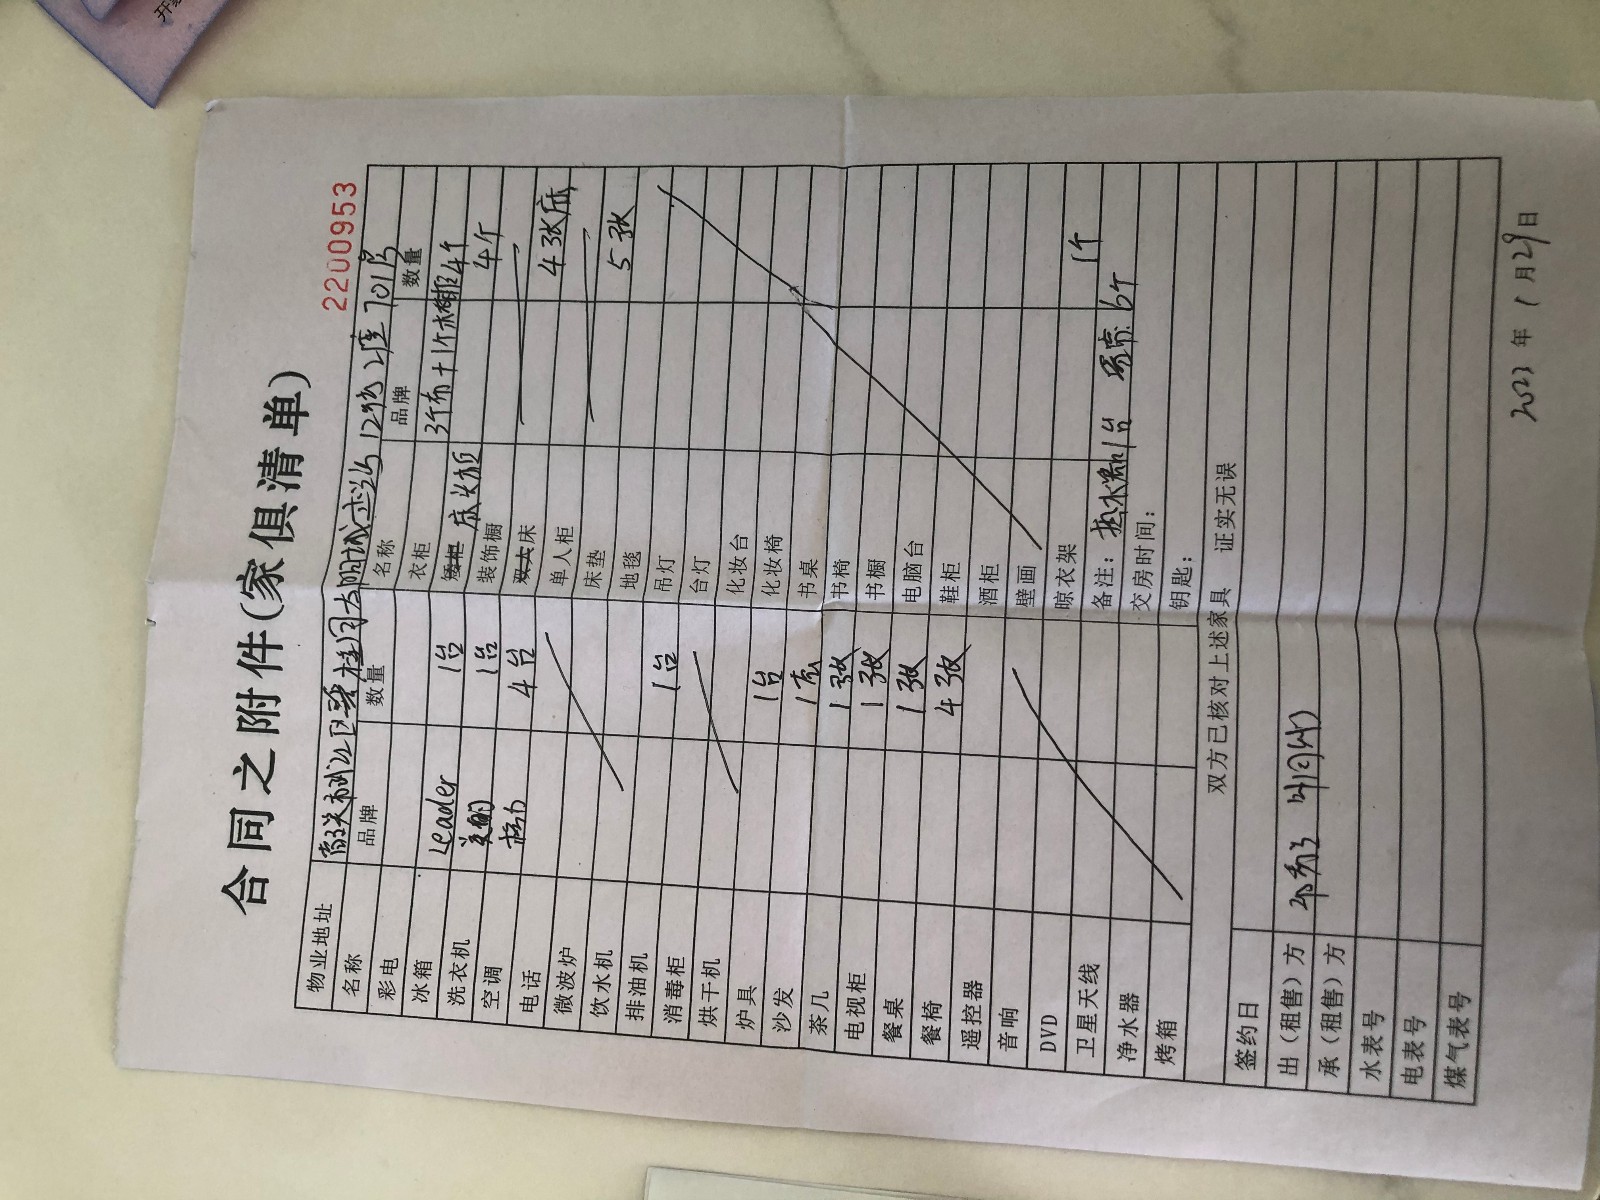 合同之附件(家俱清单)
2200953
物业地址 韶关市武江区碧桂园太阳城 12栋2座701房
名称 品牌 数量 名称 品牌 数量
彩电 衣柜 3个布+1个木 4个
冰箱 Leader 1台 矮柜 床头柜 4个
洗衣机 美的 1台 装饰橱
空调 格力 4台 双人床 4张床
电话 单人柜
微波炉 床垫 5张
饮水机 地毯
排油机 1台 吊灯
消毒柜 台灯
烘干机 化妆台
炉具 1台 化妆椅
沙发 1套 书桌
茶几 1张 书椅
电视柜 1张 书橱
餐桌 1张 电脑台
餐椅 4张 鞋柜
遥控器 酒柜
音响 壁画
DVD 晾衣架 1个
卫星天线 备注: 热水器1台 窗帘 6个
净水器 交房时间:
烤箱 钥匙:
双方已核对上述家具 证实无误
签约日
出(租售)方
承(租售)方
水表号
电表号
煤气表号
2023年1月29日
开